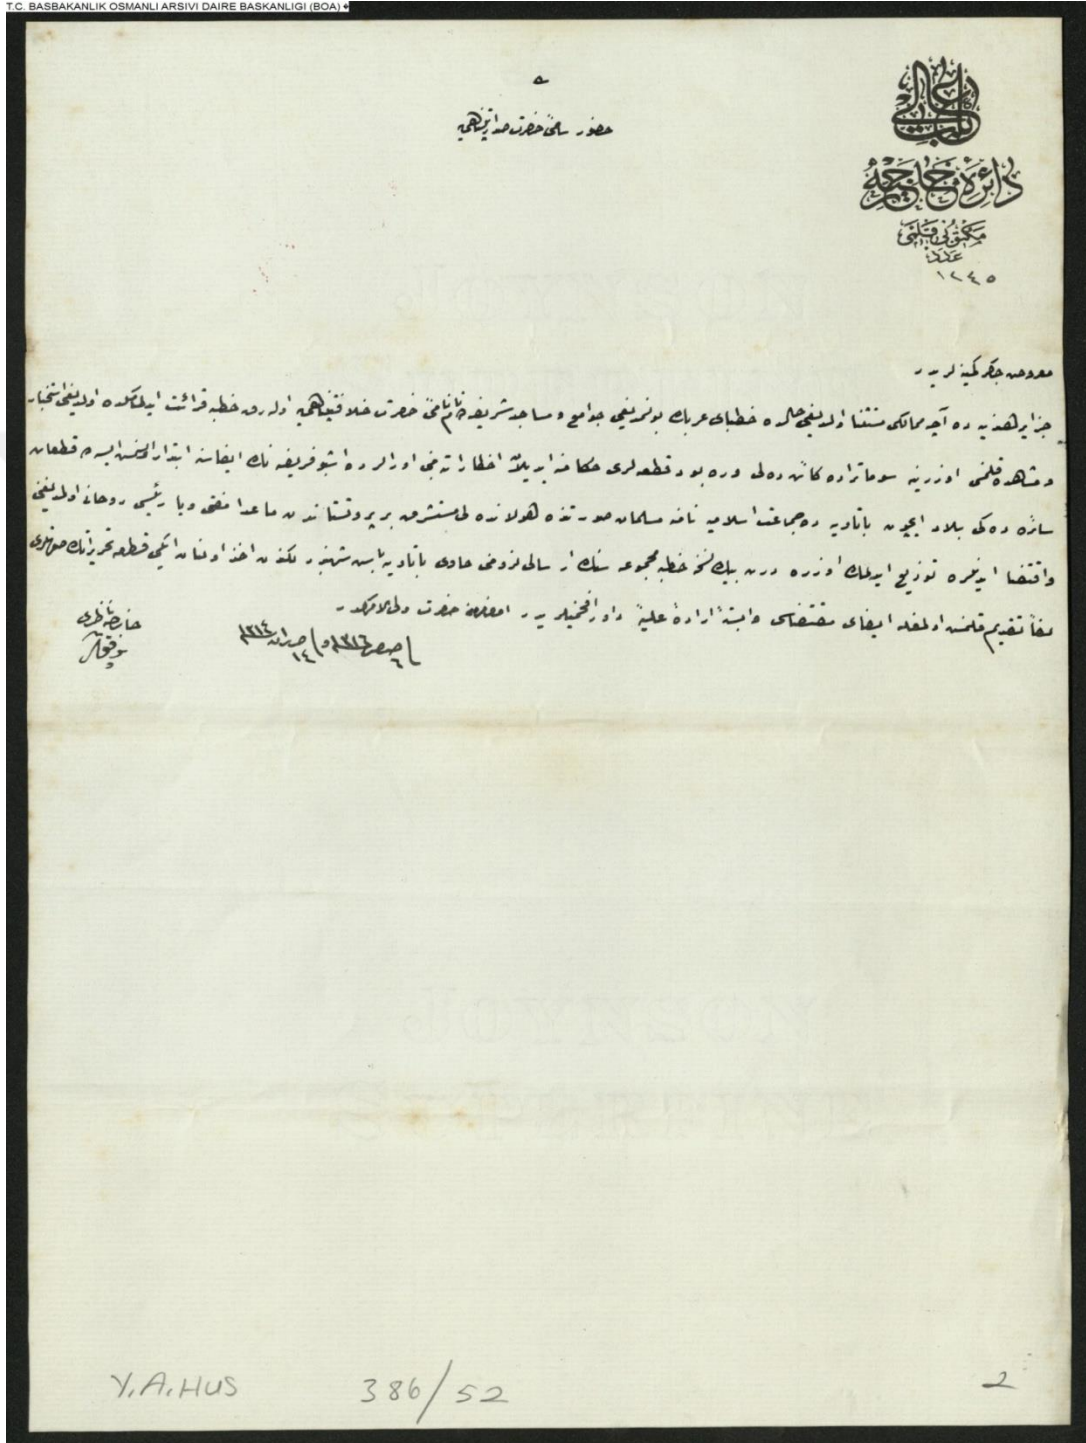 T.C. BASBAKANLIK OSMANLI ARSIVI DAIRE BASKANLIGI (BOA)
باب عالی
دائرهٔ خارجیه
مكتوبی قلمی
عدد
١٢٤٥
حضور سامئ حضرت صدارتپناهی
معروض چاكر كمینه لریدر
جزایر هندیه ده آچه ممالكی مستثنا اولدیغی حالده خطبای عربك بولندیغی جوامع و مساجد شریفه ده نام نامئ حضرت خلافتپناهی اوله رق خطبه قرائت ایدلمكده اولدیغی استخبار
و مشاهده قلنمش اوزرینه سوماتراده كائن ده لی وره یو قطعه لری حكامنه ایدیلان اخطارات اورالرده اشبو فریضه نك ایفاسنه ابتدار ایسه ده قطعات
سائره ده كی بلاد ایچون باتاویه ده جماعت اسلامیه نامنه مسلمان صورتنده هولانده لی مستشرق بر پروتستاندن ماعدا مفتی ویا رئیس روحانی اولمدیغی
واقتضا ایدنلره توزیع ایدلمك اوزره درت بیك نسخه خطبه مجموعه سنك ارسالی لزومی حاوی باتاویه باش شهبندرلكندن اخذ اولنان ایكی قطعه تحریراتك
لفاً تقدیم قلنمش اولمغله ایفای مقتضاسی وابستهٔ ارادهٔ علیهٔ داور افخمیلریدر امر و فرمان حضرت ولی الامركدر
فی ٦ صفر ٣١٦ و فی ١٤ حزیران ٣١٤
خارجیه ناظری
توفیق
Y.A.HUS 386/52 2